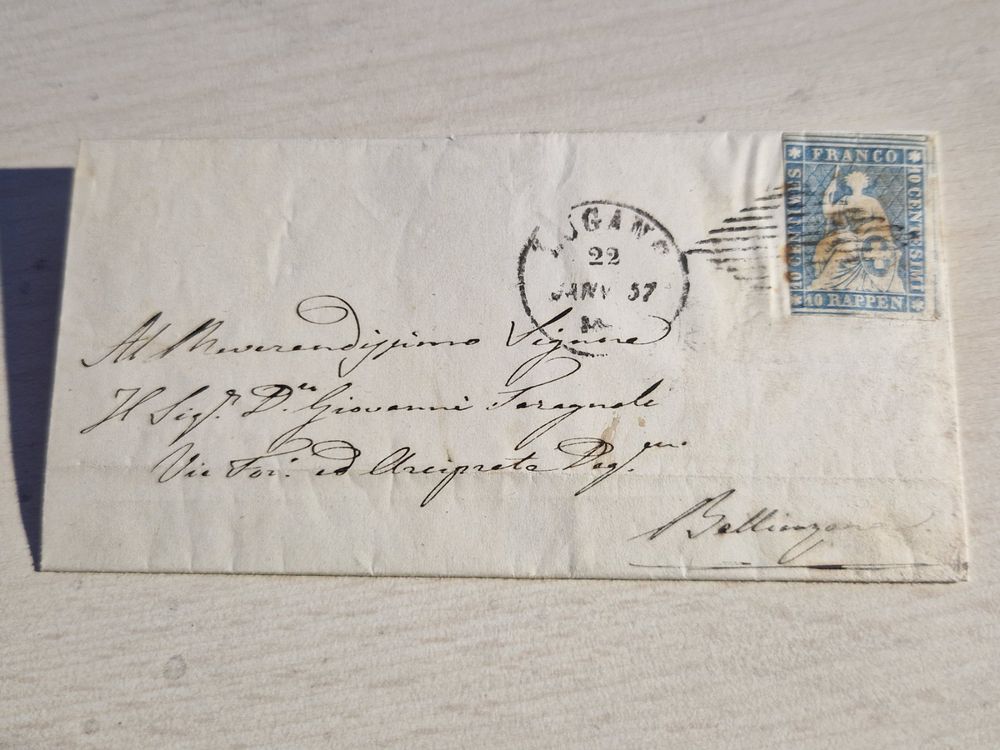 FRANCO
10 CENTIMES
10 CENTESIMI
10 RAPPEN
LUGANO
22
JANV 57
M
Al Reverendissimo Signore
Il Sigr. Dn. Giovanni
Vic For. ed Arciprete Degmo
Bellinzona